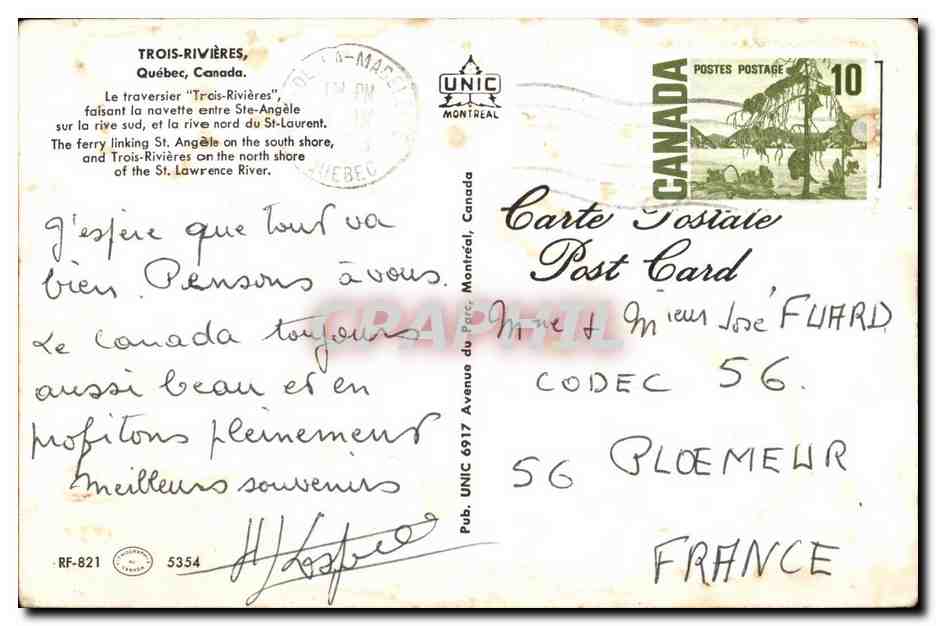 TROIS-RIVIÈRES,
Québec, Canada.
Le traversier "Trois-Rivières",
faisant la navette entre Ste-Angèle
sur la rive sud, et la rive nord du St-Laurent.
The ferry linking St. Angèle on the south shore,
and Trois-Rivières on the north shore
of the St. Lawrence River.
J'espère que tout va
bien. Pensons à vous.
Le Canada toujours
aussi beau et en
profitons pleinement
Meilleurs souvenirs
RF-821
5354
UNIC
MONTREAL
Pub. UNIC 6917 Avenue du Parc, Montréal, Canada
QUEBEC
PM
CANADA
POSTES POSTAGE
10
Carte Postale
Post Card
Mme & Mieur José FUARD
CODEC 56.
56 PLOEMEUR
FRANCE
CPAPHIL